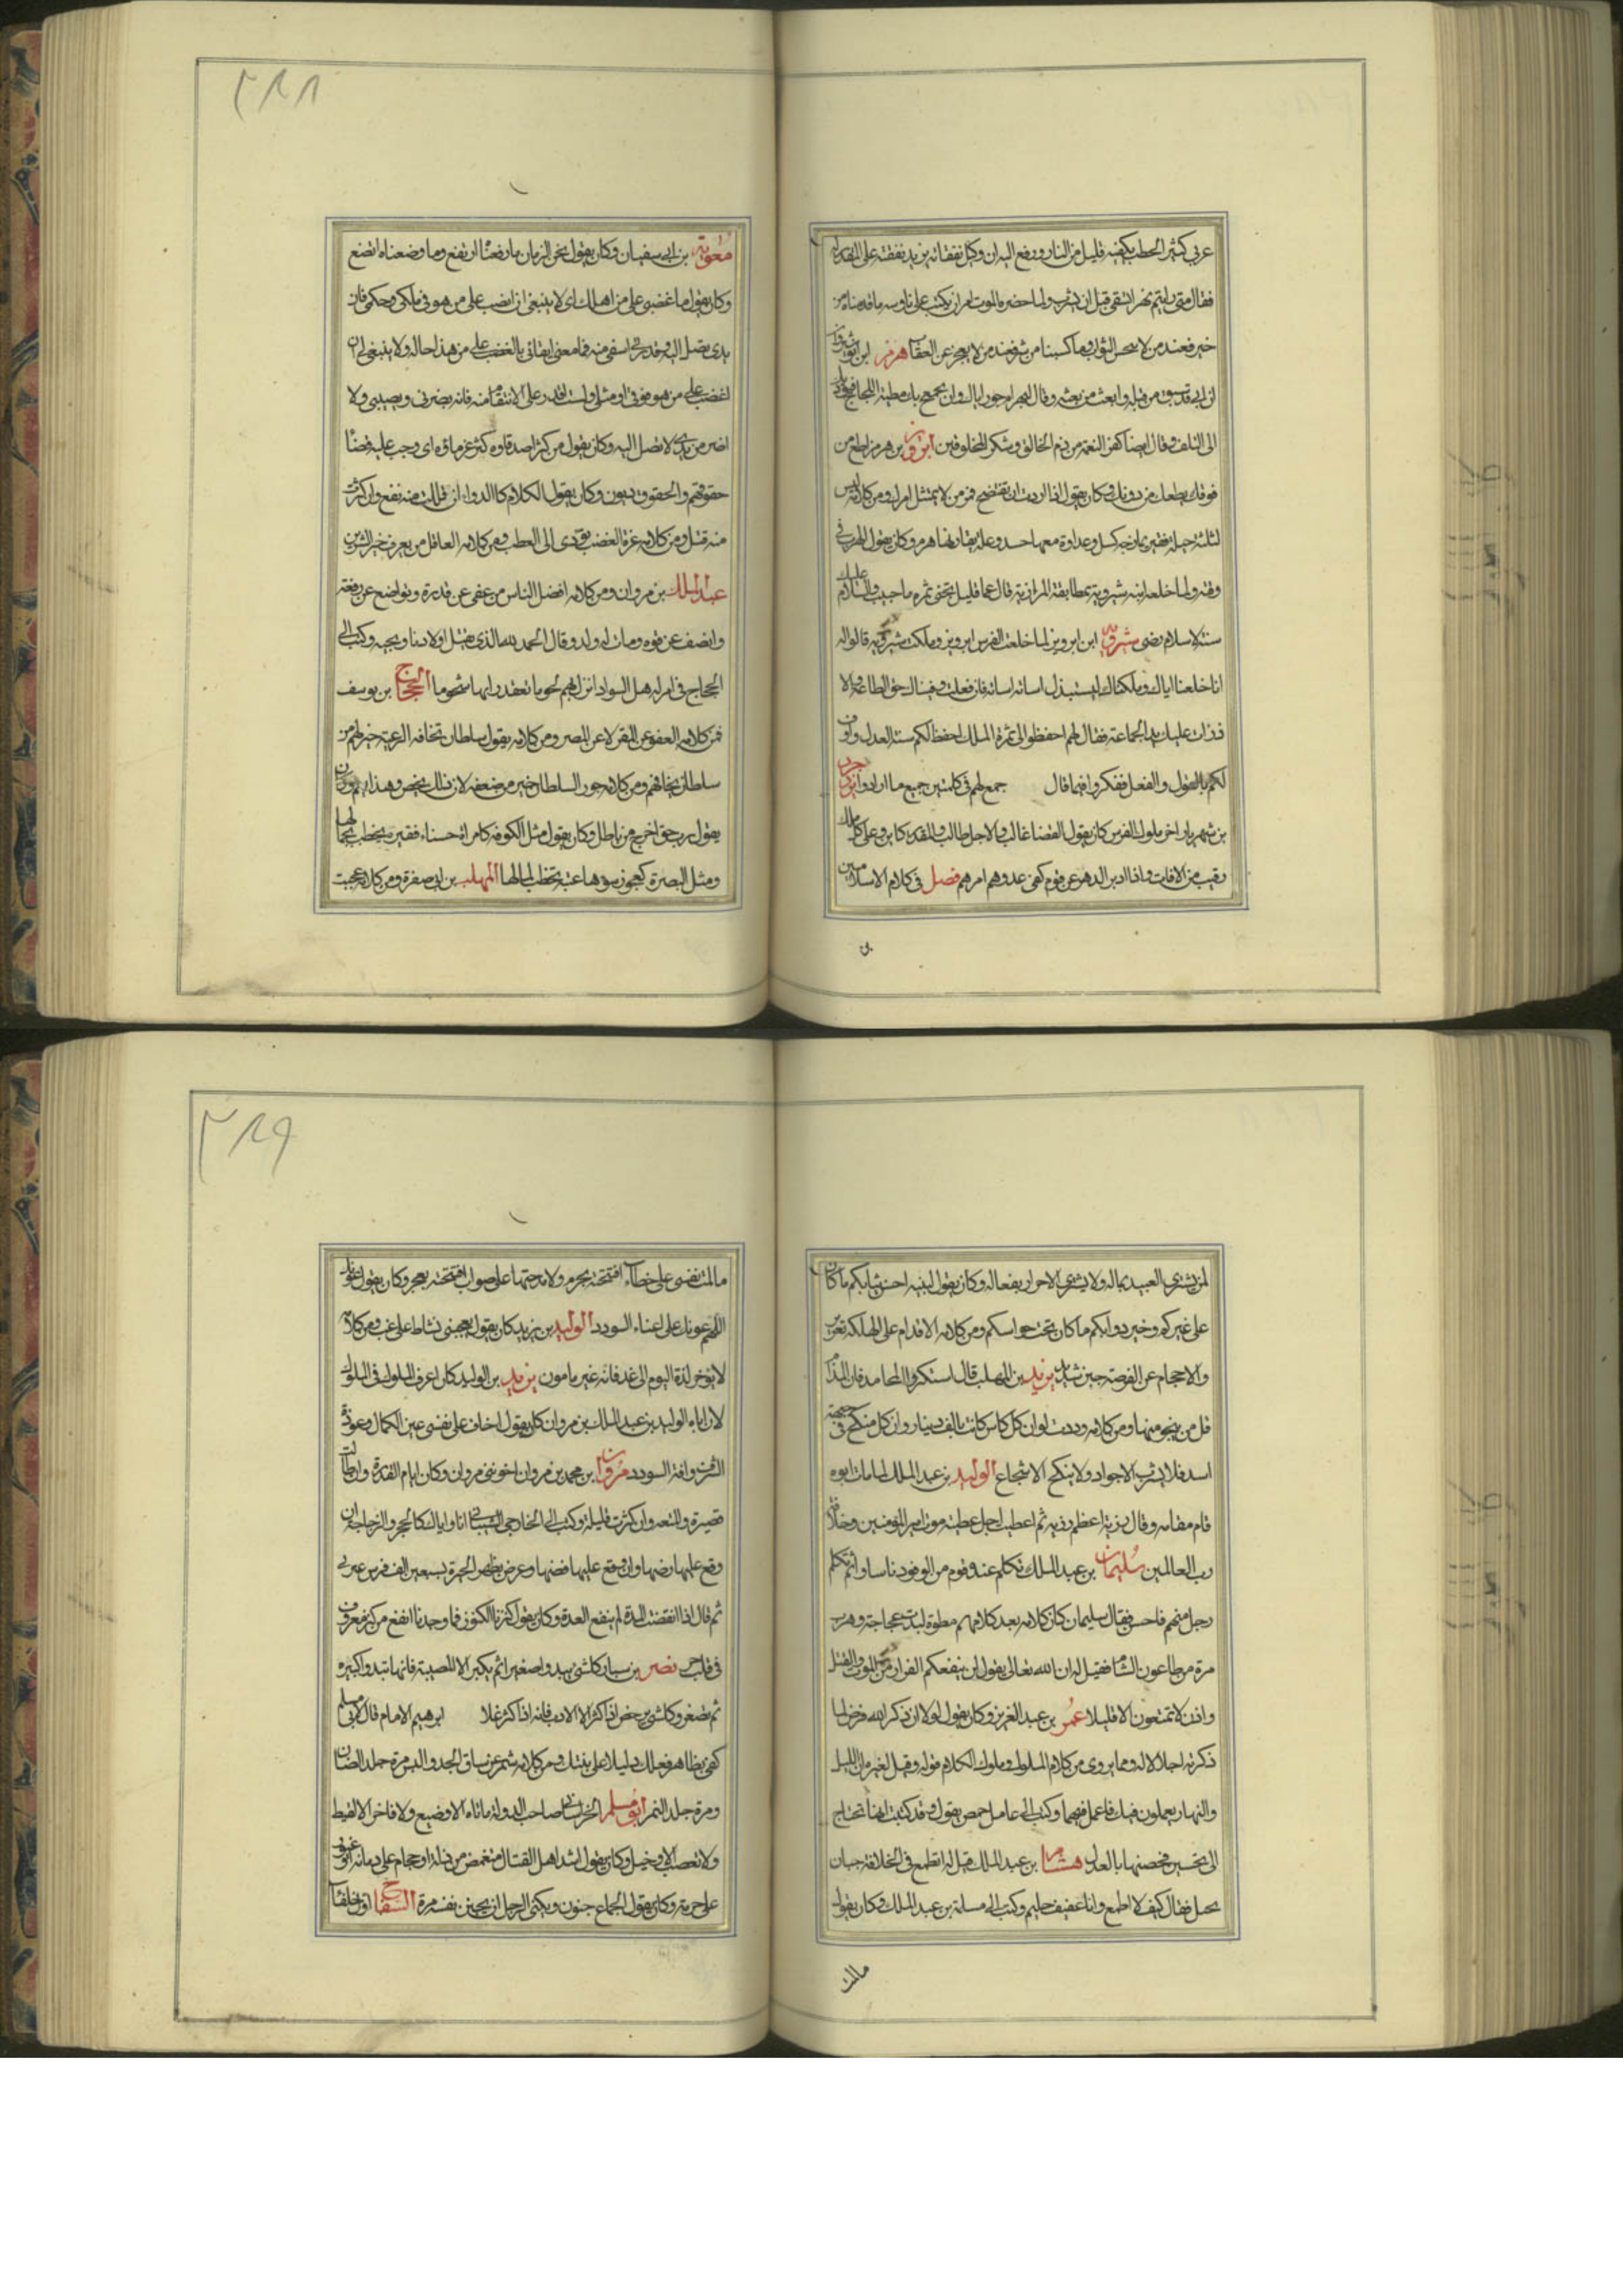 ٢٨٨
عربي كثير الحطب يكفيه قليل من النار ورفع اليه ان وكيل نفقاته يزيد نفقته على القدر له
فقال متى رايتم نهرا يسقى قبل ان يشرب ولما حضره الموت امر ان يكتب على ناوسه ما قدمناه من
خير فعند من لا يبخس الثواب وما كسبنا من شر فعند من لا يعجز عن العقاب هرمز ابن انوشروان
ان ابي قد سبق من قبله وابعث من بعثه وقال لبهرام جور اياك وان يجمح بك مطية اللجاج فيؤديك
الى التلف وقال ايضا كفر النعمة من ذم الخالق وشكر المخلوقين ابرويز بن هرمز اطع من
فوقك يطعك من دونك وكان يقول اذا اردت ان تفتضح فمر من لا يمتثل امرك ومن كلامه ليس
لثلثة حيلة فقير يمازجه كسل وعداوة معها حسد وعلة يقارنها هرم وكان يقول الهرب في
وقته ولما خلعه ابنه شيرويه بمطابقة المرازبة قال عما قليل تجتنى ثمرة ما حبيب والسلام عليك
سنة الاسلام رضى شيرويه ابن ابرويز لما خلعت الفرس ابرويز وملكت شيرويه قالوا له
انا خلعنا اياك وملكناك لتستبدل اساته اساته فان فعلت وفيناك حق الطاعة والا
فذات عليك يد الجماعة فقال لهم احفظوا لي ثمرة الملك احفظ لكم سنة العدل واوف
لكم بالقول والفعل ففكروا فيما قال جمع لهم في كلمتين جميع ما ارادوا يزدجرد
بن شهريار اخر ملوك الفرس كان يقول القضا غالب والاجل طالب والمقدر كاين وعلى كل ملك
رقيب من الافات واذا ادبر الدهر عن قوم كفى عدوهم امرهم فصل في كلام الاسلاميين
معوية بن ابي سفيان وكان يقول نحن الزمان ما رفعنا ارتفع وما وضعناه اتضع
وكان يقول ما غضبي على من املك اي لا ينبغي ان اغضب على من هو في ملكي وحكمي فان
يدي تصل اليه وقدرتي اسفى منه فما معنى ايقاني بالغضب على من هذا حاله ولا ينبغي لي ان
اغضب على من هو فوقي او مثلي ولست اقدر على الانتقام منه فانه يضرني ويصيبني ولا
اضر من يدي لا تصل اليه وكان يقول من كثر اصدقاوه كثر غرماؤه اي وجب عليه قضا
حقوقهم والحقوق ديون وكان يقول الكلام كالدواء ان قللت منه نفع وان كثرت
منه قتل ومن كلامه غرة الغضب تؤدي الى العطب ومن كلامه العاقل من يعرف خير الشرين
عبد الملك بن مروان ومن كلامه افضل الناس من عفى عن قدرة وتواضع عن رفعة
وانصف عن قوه ومات له ولد وقال الحمد لله الذي يقتل اولادنا ونحبه وكتب الى
الحجاج في امر اهل السواد انزل لهم لحوما تعقد وابها شحوما الحجاج بن يوسف
فمن كلامه العفو عن المقر لا عن المصر ومن كلامه يقول سلطان تخافه الرعية خير لهم من
سلطان يخافهم ومن كلامه جور السلطان خير من ضعفه لان ذلك يخص وهذا يعم وكان
يقول رب حق اخرج من باطل وكان يقول مثل الكوفه كامراة حسناء فقيره تخطب لجمالها
ومثل البصرة كعجوز شوهاء غنية تخطب لمالها المهلب بن ابي صفرة ومن كلامه عجبت
٢٨٩
لمن يشتري العبيد بماله ولا يشتري الاحرار بفعاله وكان يقول لبنيه احسن ثيابكم ما كان
على غيركم وخير دوابكم ما كان تحت سواكم ومن كلامه الاقدام على الهلكة تغرير
والاحجام عن الفرصة جبن شديد يزيد بن المهلب قال استكثروا المحامد فان المذام
قل من ينجو منها ومن كلامه وددت لو ان كل كاس كانت بالف دينار وان كل منكح في جبهة
اسد فلا يشرب الا جواد ولا ينكح الا شجاع الوليد بن عبد الملك لما مات ابوه
قام مقامه وقال رزية اعظم رزيه ثم اعطيت اجل عطية موت امير المؤمنين وخلافة
رب العالمين سليمان بن عبد الملك تكلم عنده قوم من الوفود فاساوا ثم تكلم
رجل منهم فاحسن فقال سليمان كان كلامه بعد كلامهم مطرة لبدت عجاجة وهرب
مرة من طاعون الشام فقيل له ان الله تعالى يقول لن ينفعكم الفرار من الموت والقتل
واذن لا تمتعون الا قليلا عمر بن عبد العزيز وكان يقول لولا ان ذكر الله فرض لما
ذكرته اجلالا له ومما يروى من كلام الملوك وملوك الكلام قوله وقيل لغيره ان الليل
والنهار يعملون فيك فاعمل فيهما وكتب الى عامل حمص يقول وقد كتبت انها تحتاج
الى تحسين فحصنها بالعدل هشام بن عبد الملك قيل له اتطمع في الخلافة جبان
بخيل فقال كيف لا اطمع وانا عفيف حليم وكتب الى مسلمة بن عبد الملك وكان يقول
مالمت
مالمت نفسي على خطاء افتتحته بحزم ولا مدحتها على صواب افتتحته بعجز وكان يقول نعوذ بك
اللهم عونك على اعناء السودد الوليد بن يزيد كان يقول يعجبني نشاط على غب ومن كلامه
لا يؤخر لذة اليوم الى غد فانه غير مامون يزيد بن الوليد كان اعرف الملوك في الملوك
لان اباه الوليد بن عبد الملك بن مروان كان يقول اخاف على نفسي عين الكمال وعوذة
الشرف وافة السودد مروان بن محمد بن مروان اخو بني مروان وكان ايام القدرة وان طالت
قصيرة والمتعه وان كثرت قليلة وكتب الى الخارجي الشيباني انا واياك كالحجر والزجاجة ان
وقع عليها رضها وان وقعت عليها فضها وعرض بظهر الحيرة بسبعين الف فرس عربي
ثم قال اذا انقضت المدة لم ينفع العدة وكان يقول كنزنا الكنوز فما وجدنا انفع من كنز معروف
في قلب حر نصر بن سيار كل شي يبدو اصغير اثم يكبر الا المصيبة فانها تبدو اكبيره
ثم تصغر وكل شي يرخص اذا كثر الا الادب فانه اذا كثر غلا ابرهيم الامام قال لابي مسلم
كفى بظاهر فعلك دليلا على نيتك ومن كلامه شمر عن ساق الجد والبس مرة جلد الضان
ومرة جلد النمر ابو مسلم الخراساني صاحب الدولة ما تاه الا وضيع ولا فاخر الا لقيط
ولا تعصب الا دخيل وكان يقول اشد اهل القتال متغمض من ذلة او محام على ديانة او غيور
على حرمة وكان يقول الجماع جنون ويكفى الرجل ان يجن نفسه مرة السفاح اول خلفاء